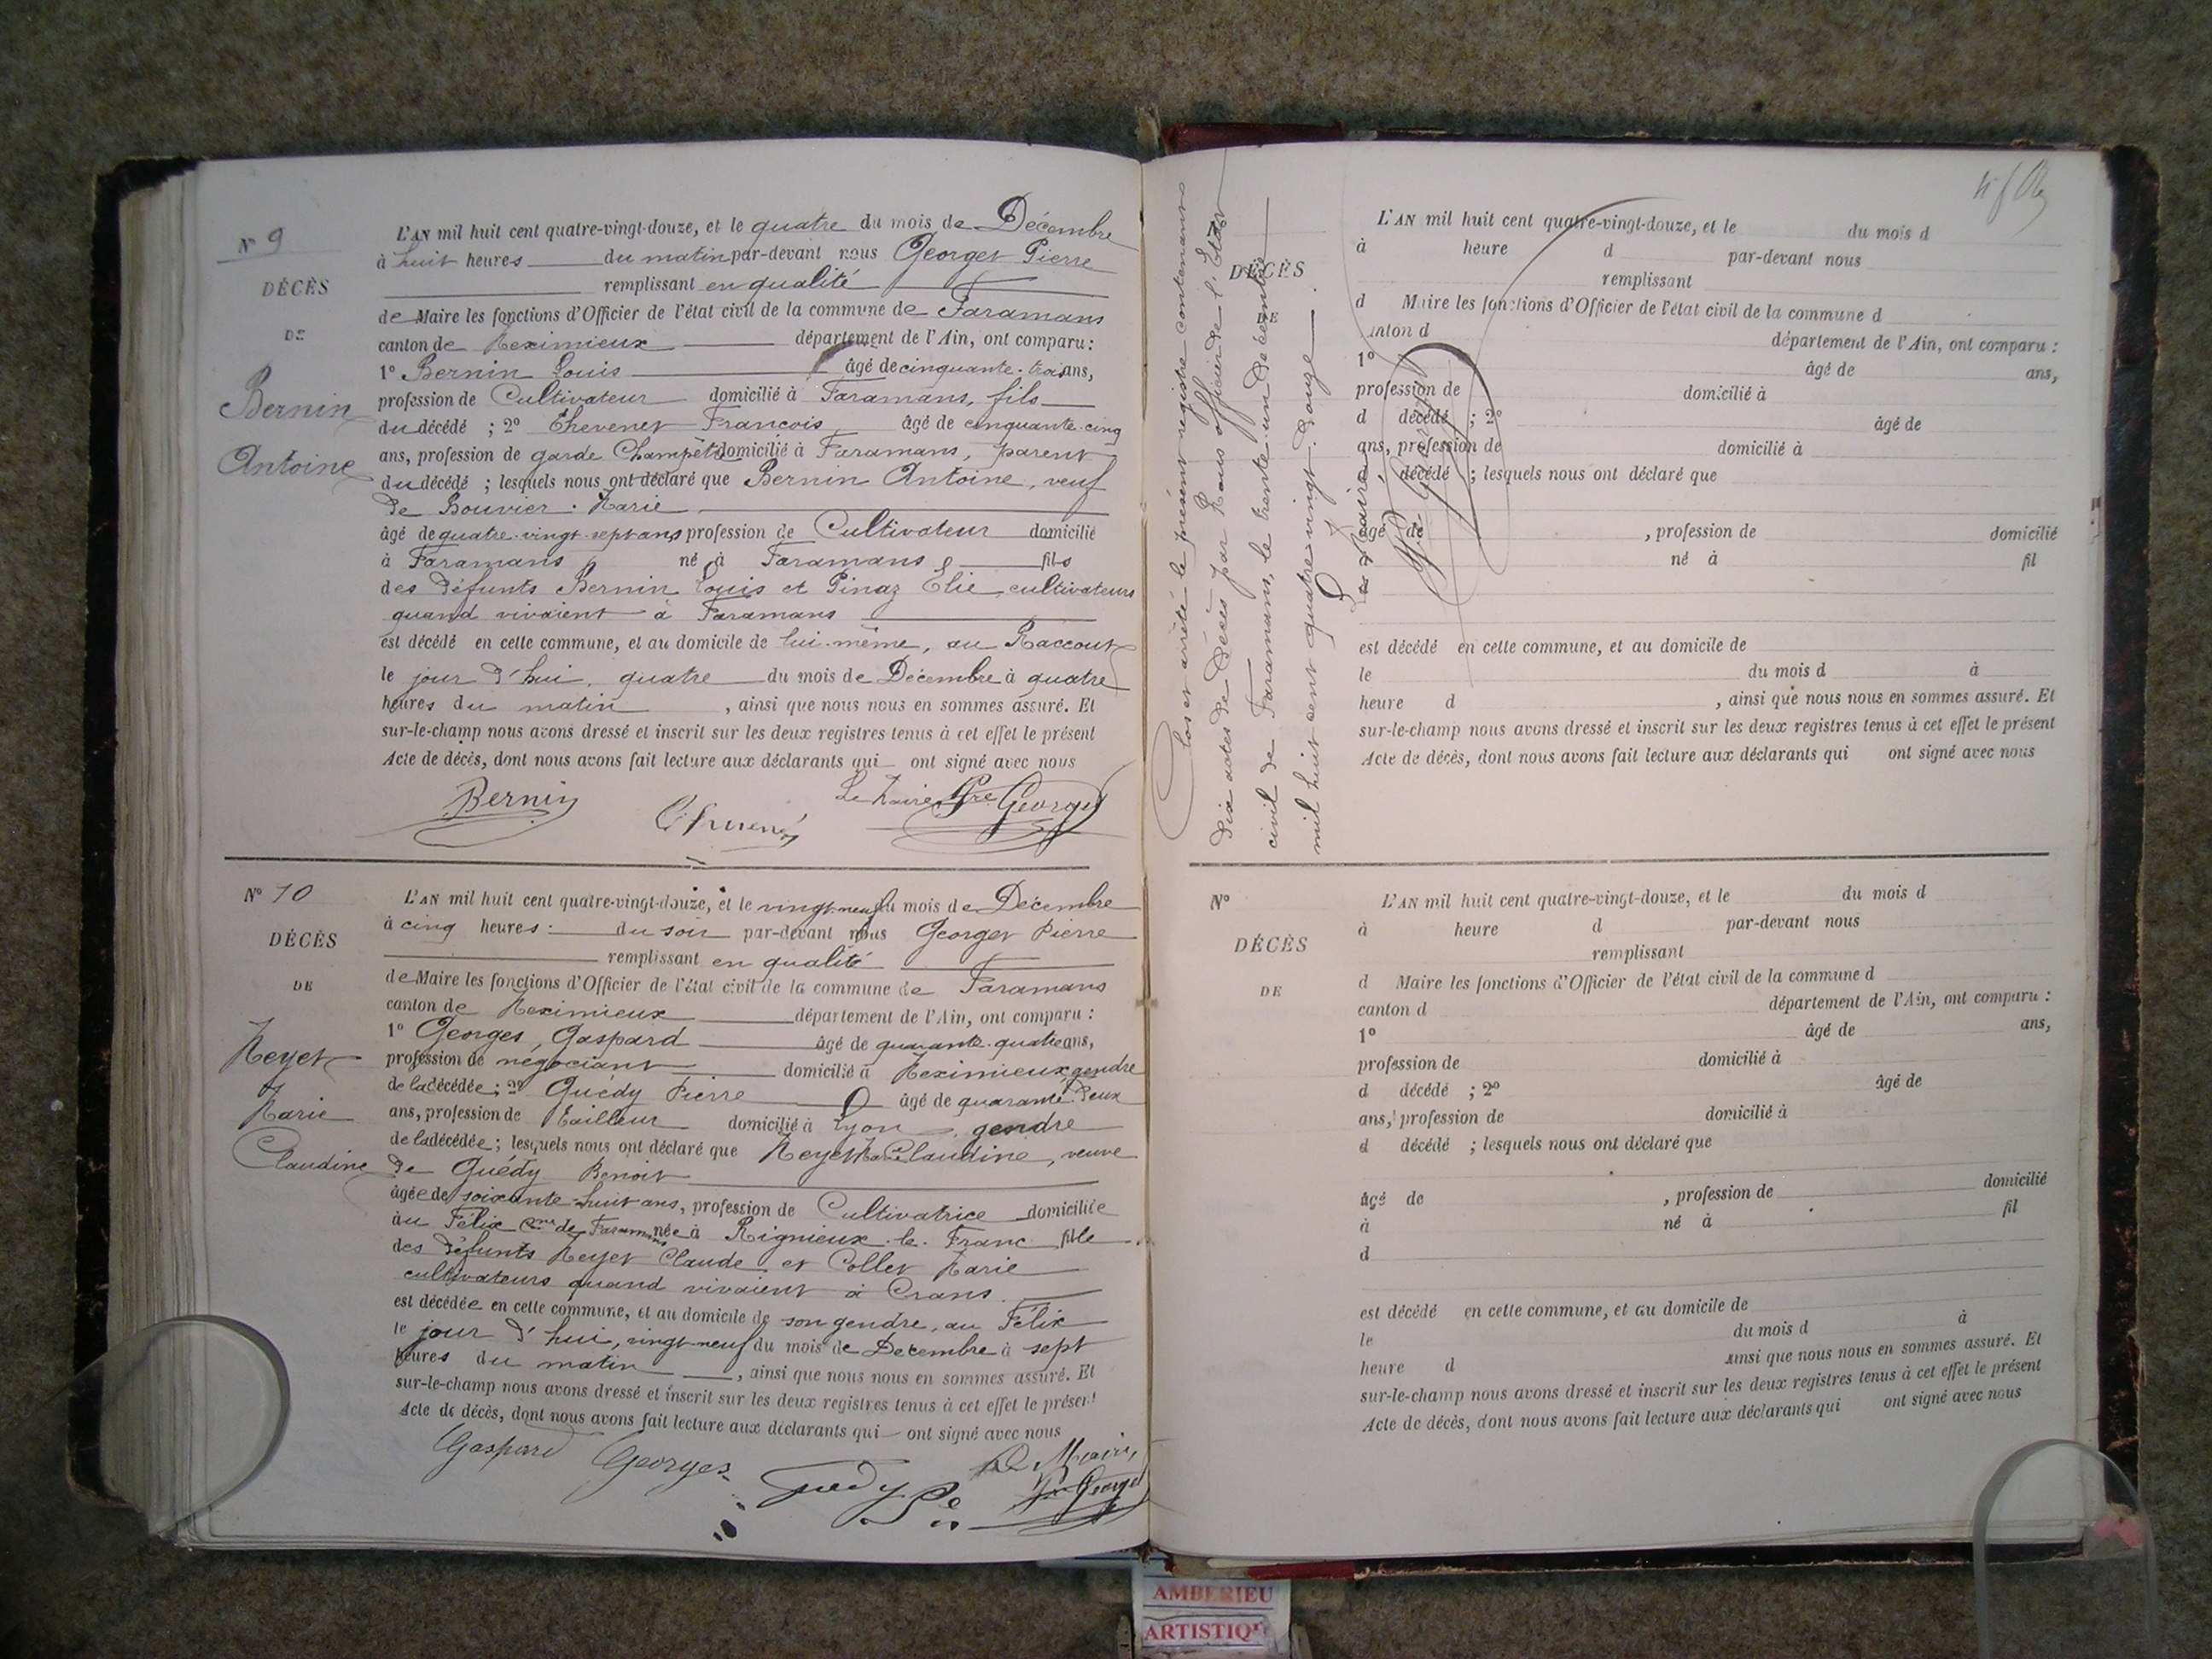 N° 9
DÉCÈS
DE
Bernin
Antoine
L'AN mil huit cent quatre-vingt-douze, et le quatre du mois de Décembre
à huit heures du matin par-devant nous Georget Pierre
remplissant en qualité
de Maire les fonctions d'Officier de l'état civil de la commune de Faramans
canton de Meximieux département de l'Ain, ont comparu :
1° Bernin Louis âgé de cinquante-trois ans,
profession de Cultivateur domicilié à Faramans, fils
du décédé ; 2° Thevenet François âgé de cinquante-cinq
ans, profession de garde Champêtre domicilié à Faramans, parent
du décédé ; lesquels nous ont déclaré que Bernin Antoine, veuf
de Bouvier Marie
âgé de quatre-vingt-sept ans profession de Cultivateur domicilié
à Faramans né à Faramans fils
des défunts Bernin Louis et Pinaz Elie cultivateurs
quand vivaient à Faramans
est décédé en cette commune, et au domicile de lui-même, au Raccourt
le jour d'hui, quatre du mois de Décembre à quatre
heures du matin , ainsi que nous nous en sommes assuré. Et
sur-le-champ nous avons dressé et inscrit sur les deux registres tenus à cet effet le présent
Acte de décès, dont nous avons fait lecture aux déclarants qui ont signé avec nous
Bernin
Le Maire Pre Georget
N° 10
DÉCÈS
DE
Meyet
Marie
Claudine
L'AN mil huit cent quatre-vingt-douze, et le vingt-neuf du mois de Décembre
à cinq heures du soir par-devant nous Georget Pierre
remplissant en qualité
de Maire les fonctions d'Officier de l'état civil de la commune de Faramans
canton de Meximieux département de l'Ain, ont comparu :
1° Georges, Gaspard âgé de quarante-quatre ans,
profession de négociant domicilié à Meximieux gendre
de la décédée ; 2° Guédy Pierre âgé de quarante-deux
ans, profession de Tailleur domicilié à Lyon, gendre
de la décédée ; lesquels nous ont déclaré que Meyet Marie Claudine, veuve
de Guédy Benoit
âgée de soixante-huit ans, profession de Cultivatrice domiciliée
au Félix Cne de Faramans née à Rignieux-le-Franc fille
des défunts Meyet Claude et Collet Marie
cultivateurs quand vivaient à Crans
est décédée en cette commune, et au domicile de son gendre, au Félix
le jour d'hui, vingt-neuf du mois de Décembre à sept
heures du matin , ainsi que nous nous en sommes assuré. Et
sur-le-champ nous avons dressé et inscrit sur les deux registres tenus à cet effet le présent
Acte de décès, dont nous avons fait lecture aux déclarants qui ont signé avec nous
Gaspard Georges
Guedy Pre
Le Maire,
Pre Georget
Clos et arrêté le présent registre contenant
dix actes de Décès par Nous officier de l'Etat
civil de Faramans, le trente-un Décembre
mil huit cent quatre-vingt-douze
Le Maire,
Pre Georget
DÉCÈS
DE
L'AN mil huit cent quatre-vingt-douze, et le du mois d
à heure d par-devant nous
remplissant
d Maire les fonctions d'Officier de l'état civil de la commune d
canton d département de l'Ain, ont comparu :
1° âgé de ans,
profession de domicilié à
d décédé ; 2° âgé de
ans, profession de domicilié à
d décédé ; lesquels nous ont déclaré que
âgé de , profession de domicilié
né à fil
est décédé en cette commune, et au domicile de
le du mois d à
heure d , ainsi que nous nous en sommes assuré. Et
sur-le-champ nous avons dressé et inscrit sur les deux registres tenus à cet effet le présent
Acte de décès, dont nous avons fait lecture aux déclarants qui ont signé avec nous
N°
DÉCÈS
DE
L'AN mil huit cent quatre-vingt-douze, et le du mois d
à heure d par-devant nous
remplissant
d Maire les fonctions d'Officier de l'état civil de la commune d
canton d département de l'Ain, ont comparu :
1° âgé de ans,
profession de domicilié à
d décédé ; 2° âgé de
ans, profession de domicilié à
d décédé ; lesquels nous ont déclaré que
âgé de , profession de domicilié
à né à fil
d
est décédé en cette commune, et au domicile de
le du mois d à
heure d ainsi que nous nous en sommes assuré. Et
sur-le-champ nous avons dressé et inscrit sur les deux registres tenus à cet effet le présent
Acte de décès, dont nous avons fait lecture aux déclarants qui ont signé avec nous
AMBERIEU
ARTISTIQ